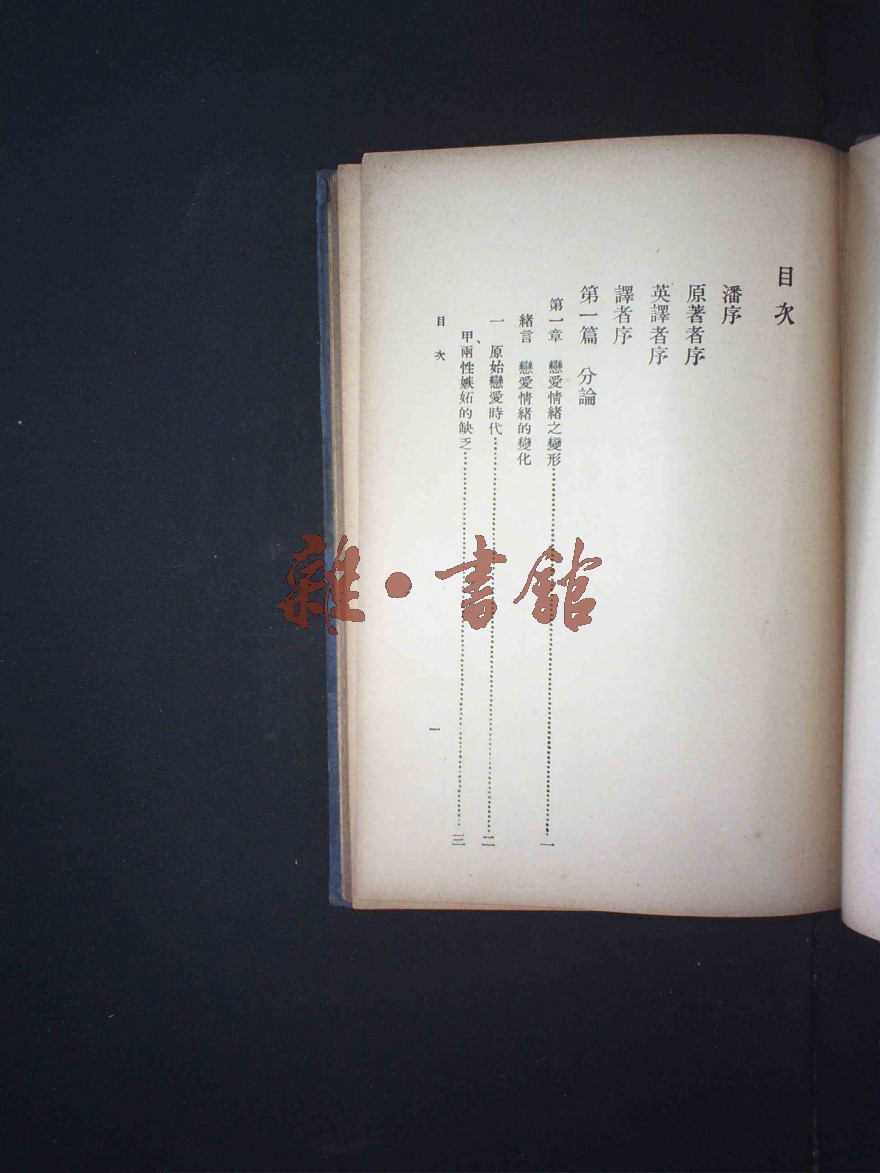 目次
潘序
原著者序
英譯者序
譯者序
第一篇 分論
第一章 戀愛情緒之變形……一
緒言 戀愛情緒的變化
一、原始戀愛時代……二
甲兩性嫉妬的缺乏……三
目次
一
雜·書館